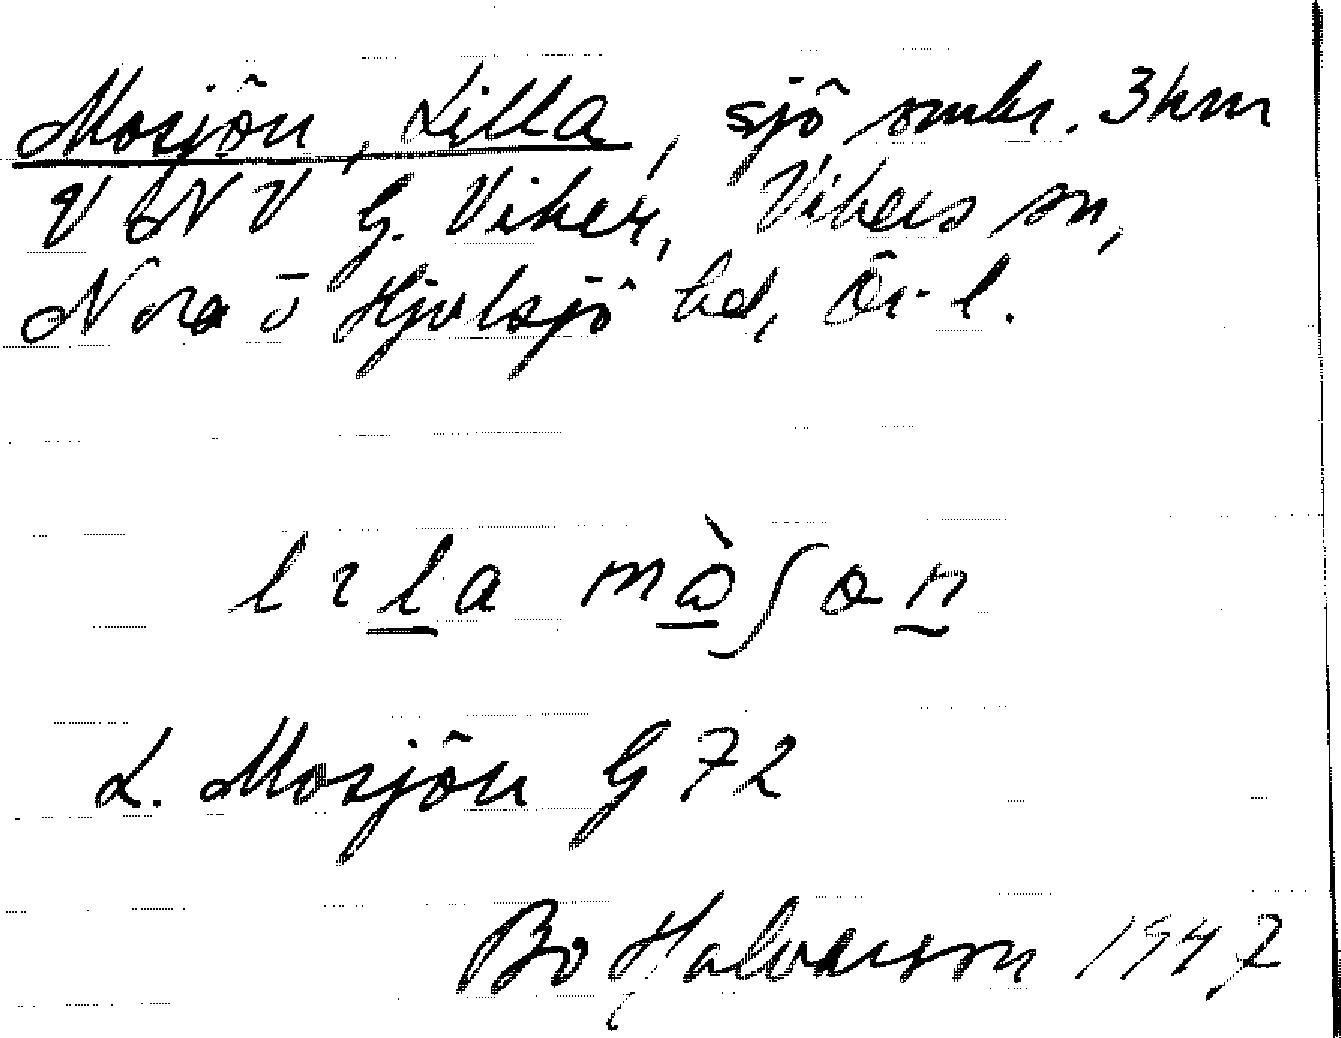 Mosjön, Lilla, sjö omkr. 3 km
V t N V G. Viker, Vikers sn,
Nora o Hjulsjö hd, Ör. l.
lɩla mòʃøn
L. Mosjön G 72
Bo Halvarson 1947